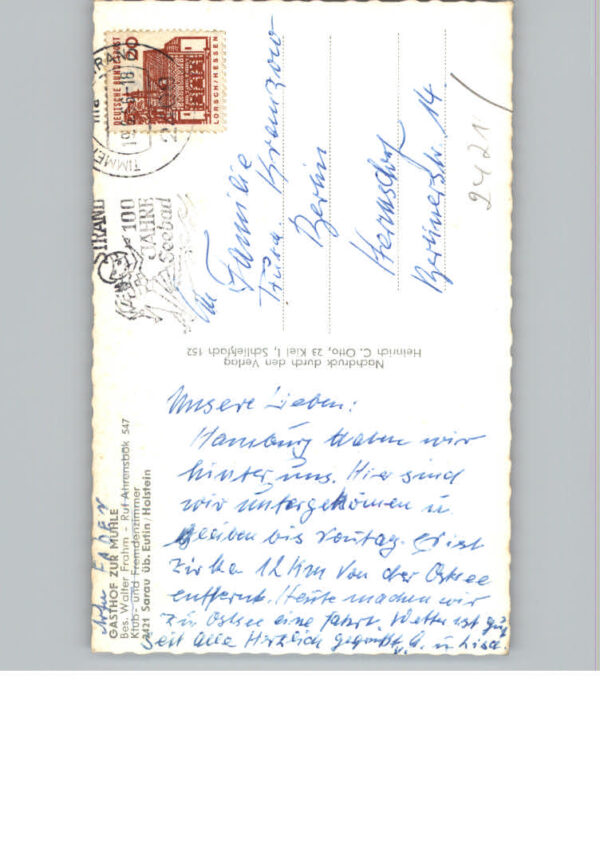 DEUTSCHE BUNDESPOST
60
LORSCH/HESSEN
TIMMEN
STRAND
100
JAHRE
Seebad
An
Familie
Berlin
Hermsdorf
Berlinerstr. 14
2421
Nachdruck durch den Verlag
Heinrich C. Otto, 23 Kiel 1, Schließfach 152
GASTHOF ZUR MÜHLE
Bes. Walter Frahm - Ruf Ahrensbök 547
Klub- und Fremdenzimmer
2421 Sarau üb. Eutin/Holstein
Unsere Lieben:
Hamburg haben wir
hinter uns. Hier sind
wir untergekommen u.
bleiben bis Sontag. Es ist
zirka 12 Km von der Ostsee
entfernt. Heute machen wir
zu Ostsee eine fahrt. Wetter ist gut
Seit alle Herzlich gegrüßt v. A. u. Lisa.